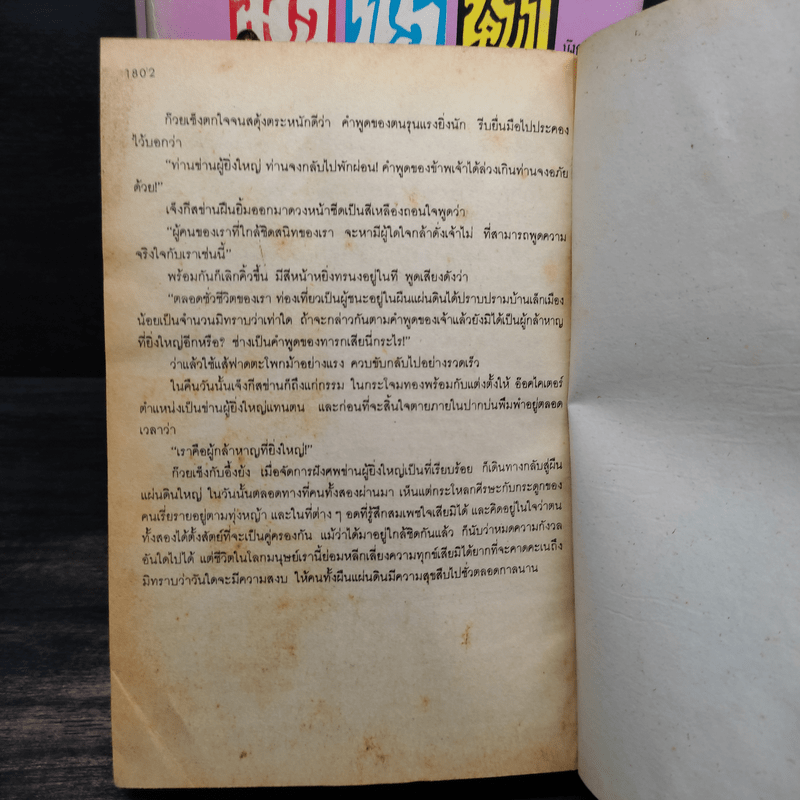 1802
ก๊วยเซ็งตกใจจนสดุ้งตระหนักดีว่า คำพูดของตนรุนแรงยิ่งนัก รีบยื่นมือไปประคอง
ไว้บอกว่า
“ท่านข่านผู้ยิ่งใหญ่ ท่านจงกลับไปพักผ่อน! คำพูดของข้าพเจ้าได้ล่วงเกินท่านจงอภัย
ด้วย!”
เจ็งกีสข่านฝืนยิ้มออกมาดวงหน้าซีดเป็นสีเหลืองถอนใจพูดว่า
“ผู้คนของเราที่ใกล้ชิดสนิทของเรา จะหามีผู้ใดใจกล้าดังเจ้าไม่ ที่สามารถพูดความ
จริงใจกับเราเช่นนี้”
พร้อมกันก็เลิกคิ้วขึ้น มีสีหน้าหยิ่งทรนงอยู่ในที พูดเสียงดังว่า
“ตลอดชั่วชีวิตของเรา ท่องเที่ยวเป็นผู้ชนะอยู่ในผืนแผ่นดินได้ปราบปรามบ้านเล็กเมือง
น้อยเป็นจำนวนมิทราบว่าเท่าใด ถ้าจะกล่าวกันตามคำพูดของเจ้าแล้วยังมิได้เป็นผู้กล้าหาญ
ที่ยิ่งใหญ่อีกหรือ? ช่างเป็นคำพูดของทารกเสียนี่กระไร!”
ว่าแล้วใช้แส้ฟาดตะโพกม้าอย่างแรง ควบขับกลับไปอย่างรวดเร็ว
ในคืนวันนั้นเจ็งกีสข่านก็ถึงแก่กรรม ในกระโจมทองพร้อมกับแต่งตั้งให้ อ๊อคไคเตอร์
ตำแหน่งเป็นข่านผู้ยิ่งใหญ่แทนตน และก่อนที่จะสิ้นใจตายภายในปากบ่นพึมพำอยู่ตลอด
เวลาว่า
“เราคือผู้กล้าหาญที่ยิ่งใหญ่!”
ก๊วยเซ็งกับอึ้งย้ง เมื่อจัดการฝังศพข่านผู้ยิ่งใหญ่เป็นที่เรียบร้อย ก็เดินทางกลับสู่ผืน
แผ่นดินใหญ่ ในวันนั้นตลอดทางที่คนทั้งสองผ่านมา เห็นแต่กระโหลกศีรษะกับกระดูกของ
คนเรี่ยรายอยู่ตามทุ่งหญ้า และในที่ต่าง ๆ อดที่รู้สึกสมเพชใจเสียมิได้ และคิดอยู่ในใจว่าตน
ทั้งสองได้ตั้งสัตย์ที่จะเป็นคู่ครองกัน แม้ว่าได้มาอยู่ใกล้ชิดกันแล้ว ก็นับว่าหมดความกังวล
อันใดไปได้ แต่ชีวิตในโลกมนุษย์เรานี้ย่อมหลีกเลี่ยงความทุกข์เสียมิได้ยากที่จะคาดคะเนถึง
มิทราบว่าวันใดจะมีความสงบ ให้คนทั้งผืนแผ่นดินมีความสุขสืบไปชั่วตลอดกาลนาน